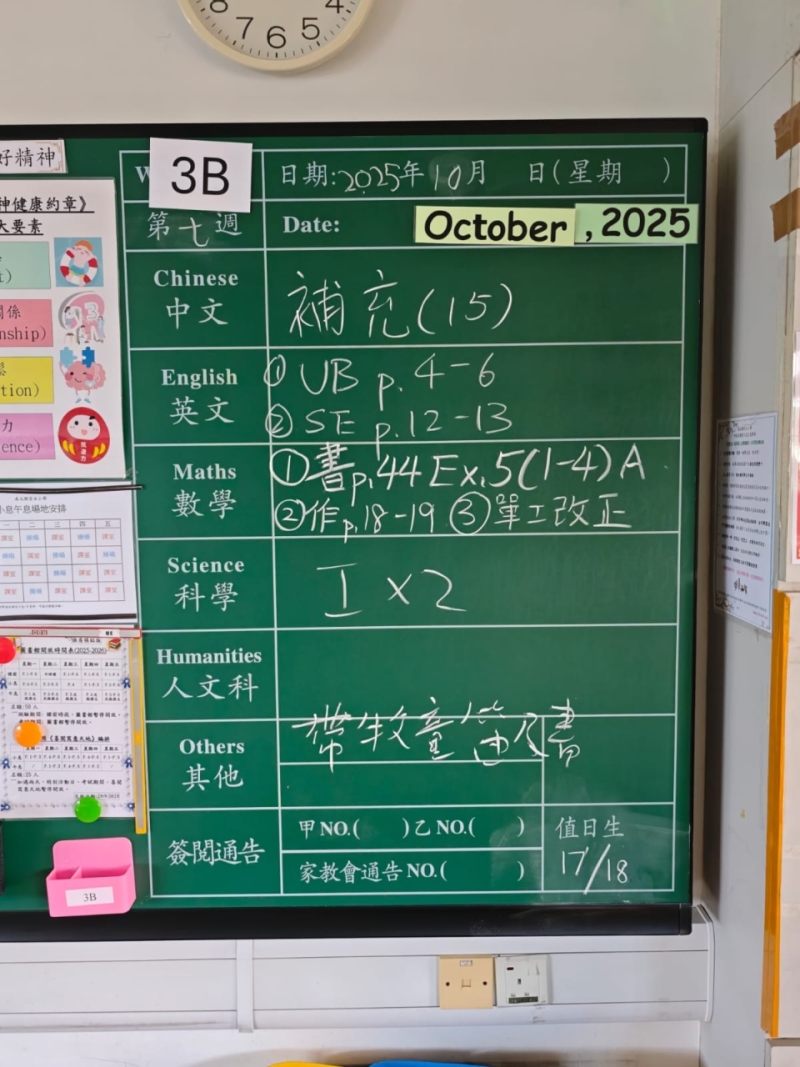 8 7 6 5 4
好精神
3B
日期:2025年10月　日(星期　)
W
第七週
Date:
October , 2025
神健康約章》
大要素
Chinese
中文
補充(15)
English
英文
① UB p.4-6
② SE p.12-13
Maths
數學
①書p.44 Ex.5(1-4)A
②作p.18-19 ③單工改正
Science
科學
工×2
Humanities
人文科
Others
其他
帶牧童笛及書
簽閱通告
甲NO.(　)乙NO.(　)
家教會通告NO.(　)
值日生
17/18
3B
係
nship)
tion)
力
ence)
小息午息場地安排
一 二 三 四 五
圖書館開放時間表(2025-2026)